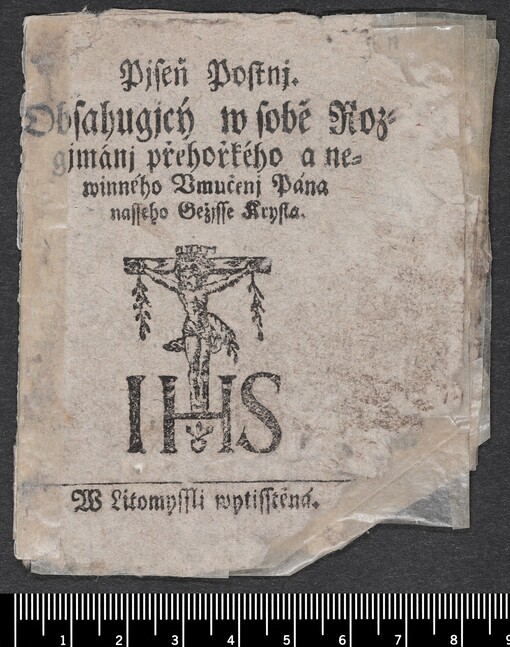 Pjseň Postnj.
Obsahugjcý w sobě Roz-
gjmánj přehořkého a ne-
winného Vmučenj Pána
nasseho Gežjsse Krysta.
IHS
W Litomyssli wytisstěná.
1 2 3 4 5 6 7 8 9